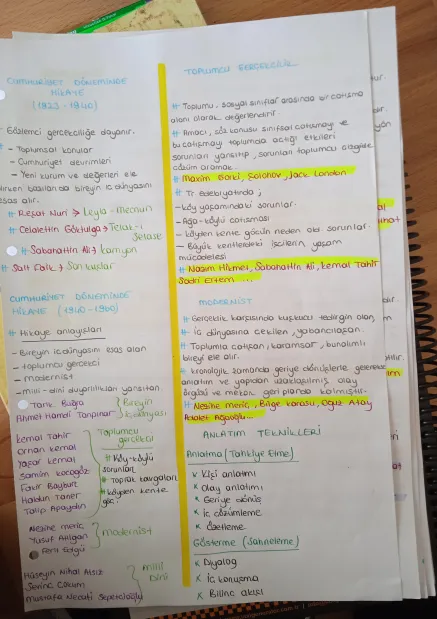 CUMHURİYET DÖNEMİNDE
HİKAYE
(1923 - 1940)
Gözlemci gerçekçiliğe dayanır.
- Toplumsal konular
- Cumhuriyet devrimleri
- Yeni kurum ve değerleri ele
bazıları da bireyin iç dünyasını
esas alır.
# Reşat Nuri → Leyla - Mecnun
# Celalettin Göktulga →
# Sabahattin Ali → Kamyon
# Sait Faik →
CUMHURİYET DÖNEMİNDE
HİKAYE (1940 - 1960)
# Hikaye anlayışları
- Bireyin iç dünyasını esas alan
- toplumcu gerçekçi
- modernist
- milli - dini duyarlılıkları yansıtan
Tarık Buğra
Ahmet Hamdi Tanpınar
Bireyin
iç dünyası
Kemal Tahir
Orhan Kemal
Yaşar Kemal
Samim Kocagöz
Fakir Baykurt
Haldun Taner
Talip Apaydın
Toplumcu
gerçekçi
# Köy - köylü
sorunları
# Toprak kavgaları
# köyden kente
göç
Nezihe meriç
Yusuf Atılgan
Ferit Edgü
modernist
Hüseyin Nihal Atsız
Sevinç Çokum
Mustafa Necati Sepetçioğlu
milli
Dini
TOPLUMCU GERÇEKÇİLİK
# Toplumu, sosyal sınıflar arasında bir çatışma
alanı olarak değerlendirir
# Amacı, söz konusu sınıfsal çatışmayı ve
bu çatışmayı toplumda açtığı etkileri
sorunları yansıtıp, sorunları toplumcu çizgide
çözüm aramak.
# Maxim Gorki, Şolohov, Jack London
# Tr. edebiyatında ;
- köy yaşamındaki sorunlar.
- Ağa - köylü çatışması
- köyden kente göçün neden old. sorunlar.
- Büyük kentlerdeki işçilerin, yaşam
mücadelesi
# Nazım Hikmet, Sabahattin Ali, Kemal Tahir
Sadri Ertem ...
MODERNİST
# Gerçeklik karşısında kuşkucu tedirgin olan,
# iç dünyasına çekilen, yabancılaşan.
# Toplumla çatışan, karamsar, bunalımlı
bireyi ele alır.
# kronolojik zamanda geriye dönüşlerle geleneksel
anlatım ve yapıdan uzaklaşılmış, olay
örgüsü ve mekan, geri planda kalmıştır.
# Nezihe meriç, Bilge karasu, Oğuz Atay
Adalet Ağaoğlu...
ANLATIM TEKNİKLERİ
Anlatma (Tahkiye Etme)
x Kişi anlatımı
x Olay anlatımı
x Geriye dönüş
x iç çözümleme
x Özetleme
Gösterme (Sahneleme)
x Diyalog
x iç konuşma
x Bilinç akışı